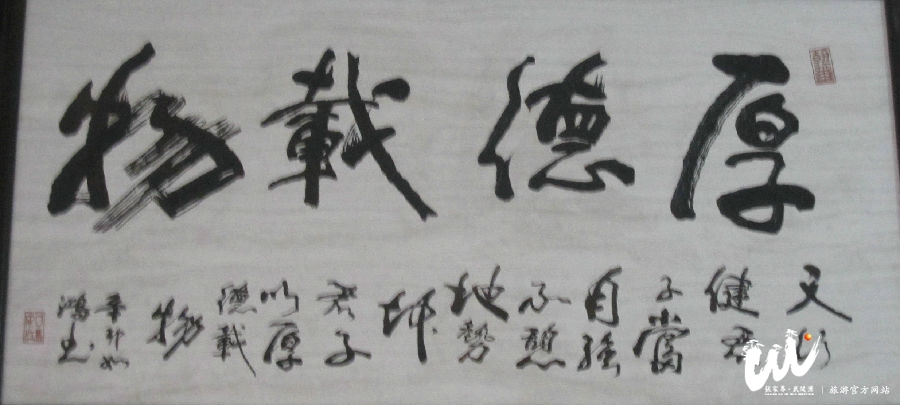 厚德載物
天行
健君
子當
自強
不憩
地勢
坤
君子
以厚
德載
物
辛卯如
鴻書
張家界·武陵源
旅游官方网站